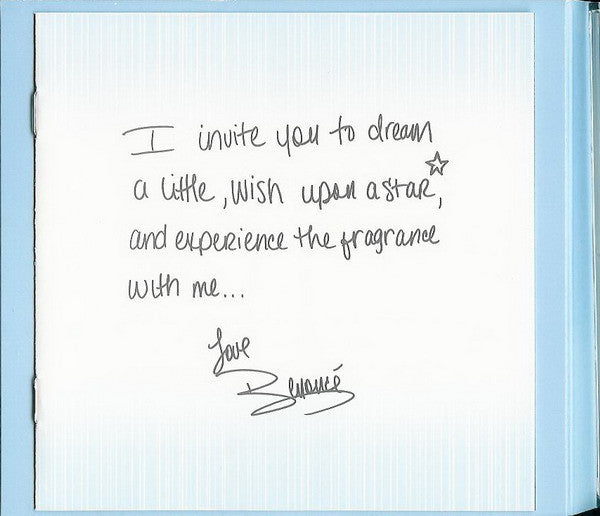 I invite you to dream
a little, wish upon a star,
and experience the fragrance
with me...
Love
Beyoncé